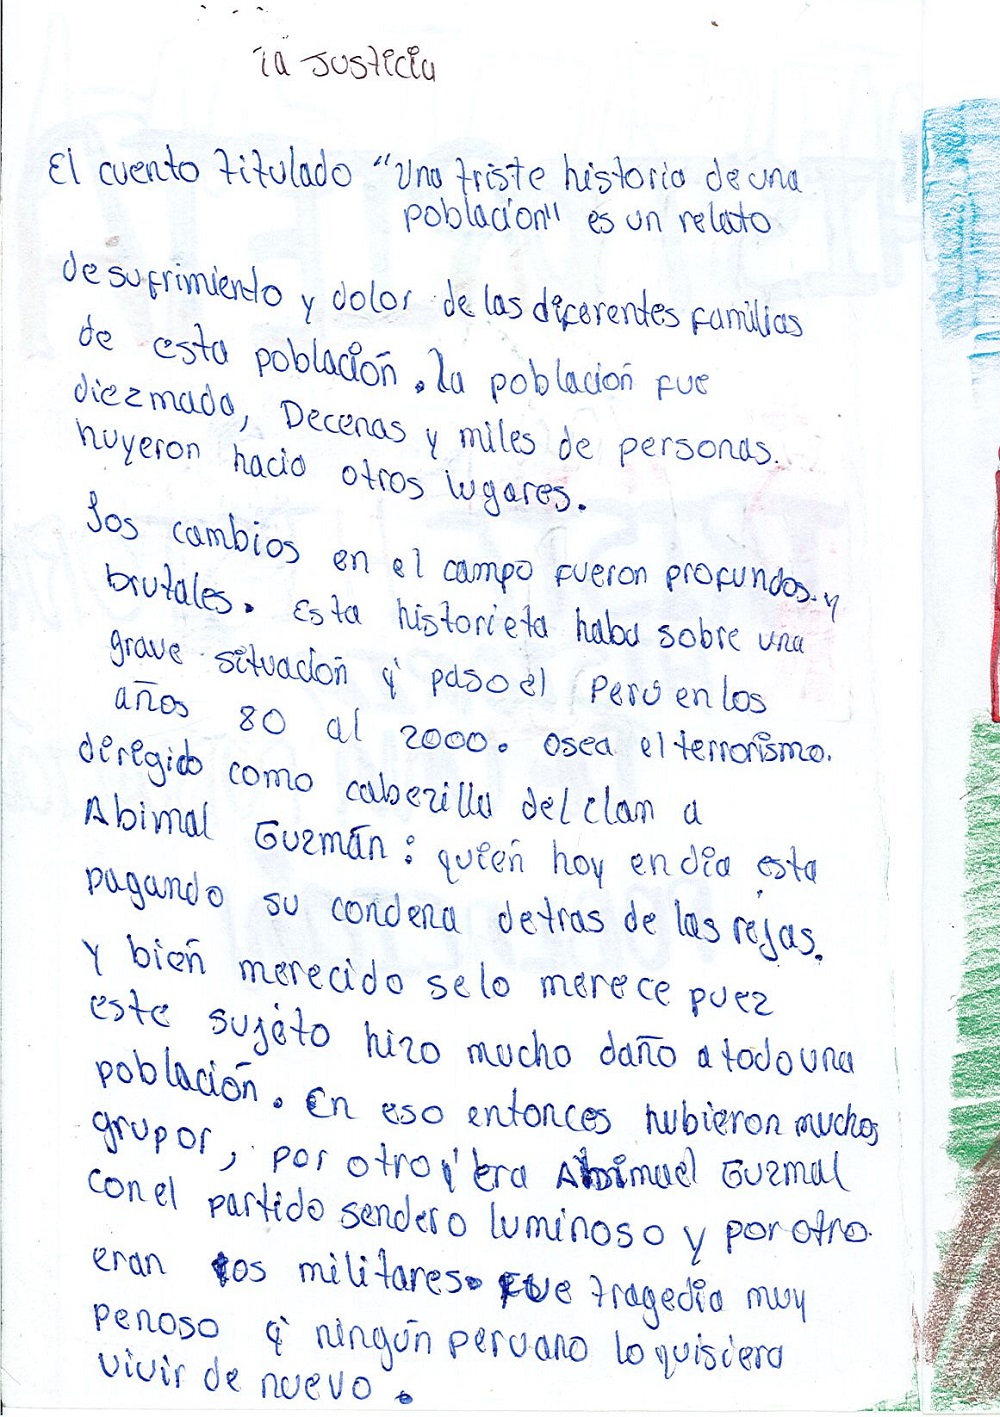 la Justicia
El cuento titulado "Una triste historia de una
población" es un relato
de sufrimiento y dolor de las diferentes familias
de esta población. la población fue
diezmada, Decenas y miles de personas.
huyeron hacia otros lugares.
Los cambios en el campo fueron profundos y
brutales. Esta historieta haba sobre una
grave situación q' paso el Perú en los
años 80 al 2000. osea el terrorismo.
deregido como cabezilla del clan a
Abimal Guzmán: quien hoy en día esta
pagando su condena detras de las rejas.
y bien merecido selo merece puez
este sujéto hizo mucho daño a todo una
población. En eso entonces hubieron muchos
grupor, por otro era Abimael Guzmal
con el partido sendero luminoso y por otro.
eran los militares. Fue tragedia muy
penoso q' ningún peruano lo quisiera
vivir de nuevo.